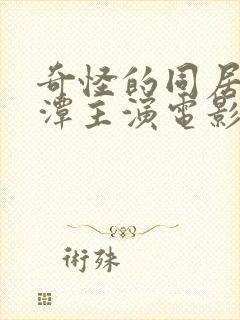 奇怪的同居
潭主演電影
術殊